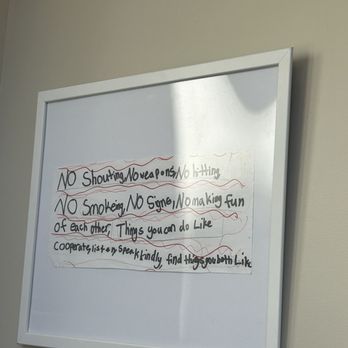 NO Shouting, No weapons, No hitting
NO Smokeing, NO Signs, No making fun
of each other, Things you can do Like
Cooperate, listen, Speak kindly, find things you both Like